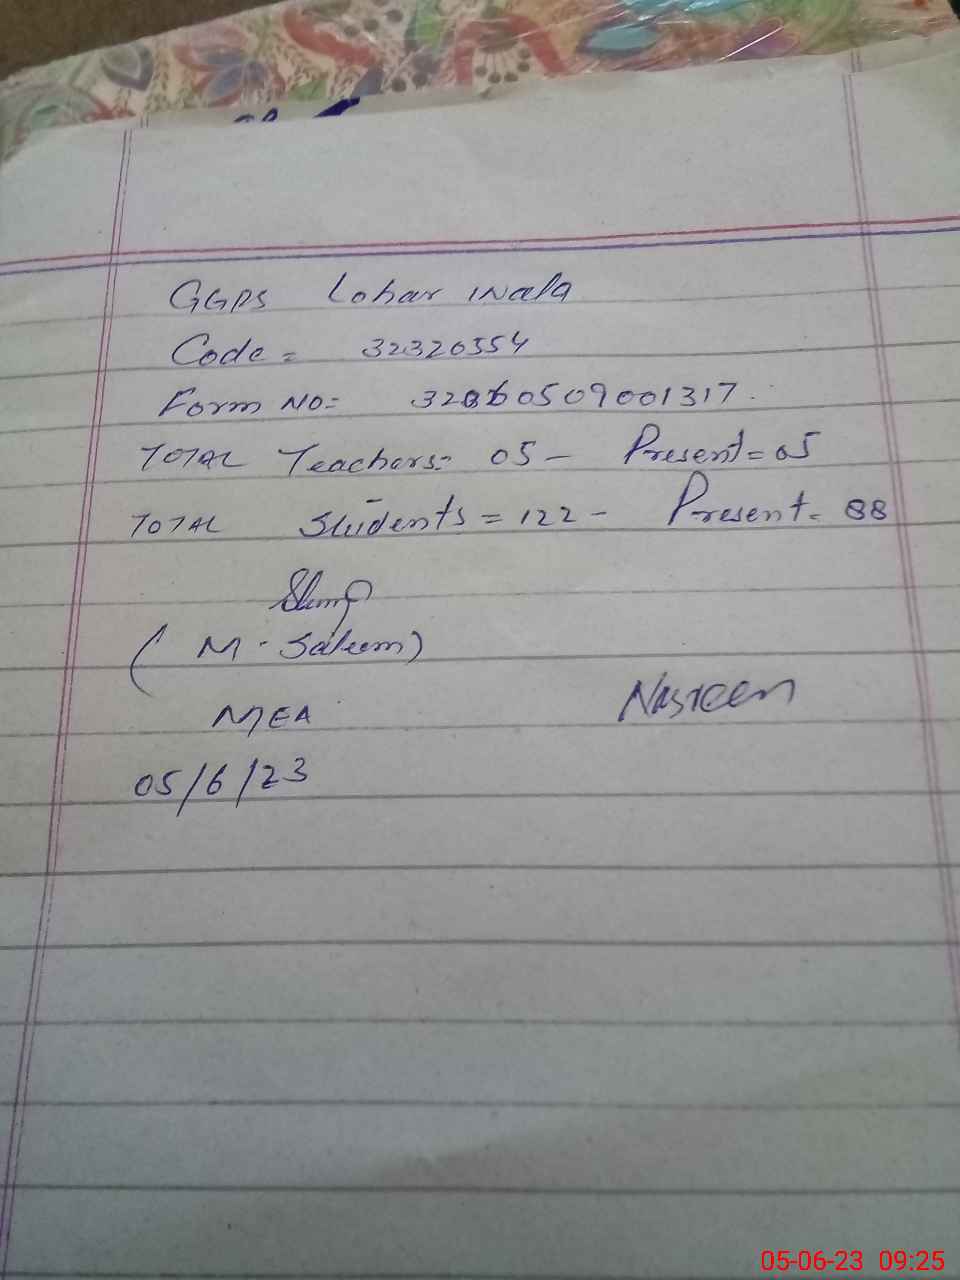 GGPS Lohar wala
Code = 32320354
Form NO= 32860509001317.
TOTAL Teachers= 05 - Present = 05
TOTAL Students = 122 - Present = 88
(M. Saleem)
MEA Nasreen
05/6/23
05-06-23 09:25